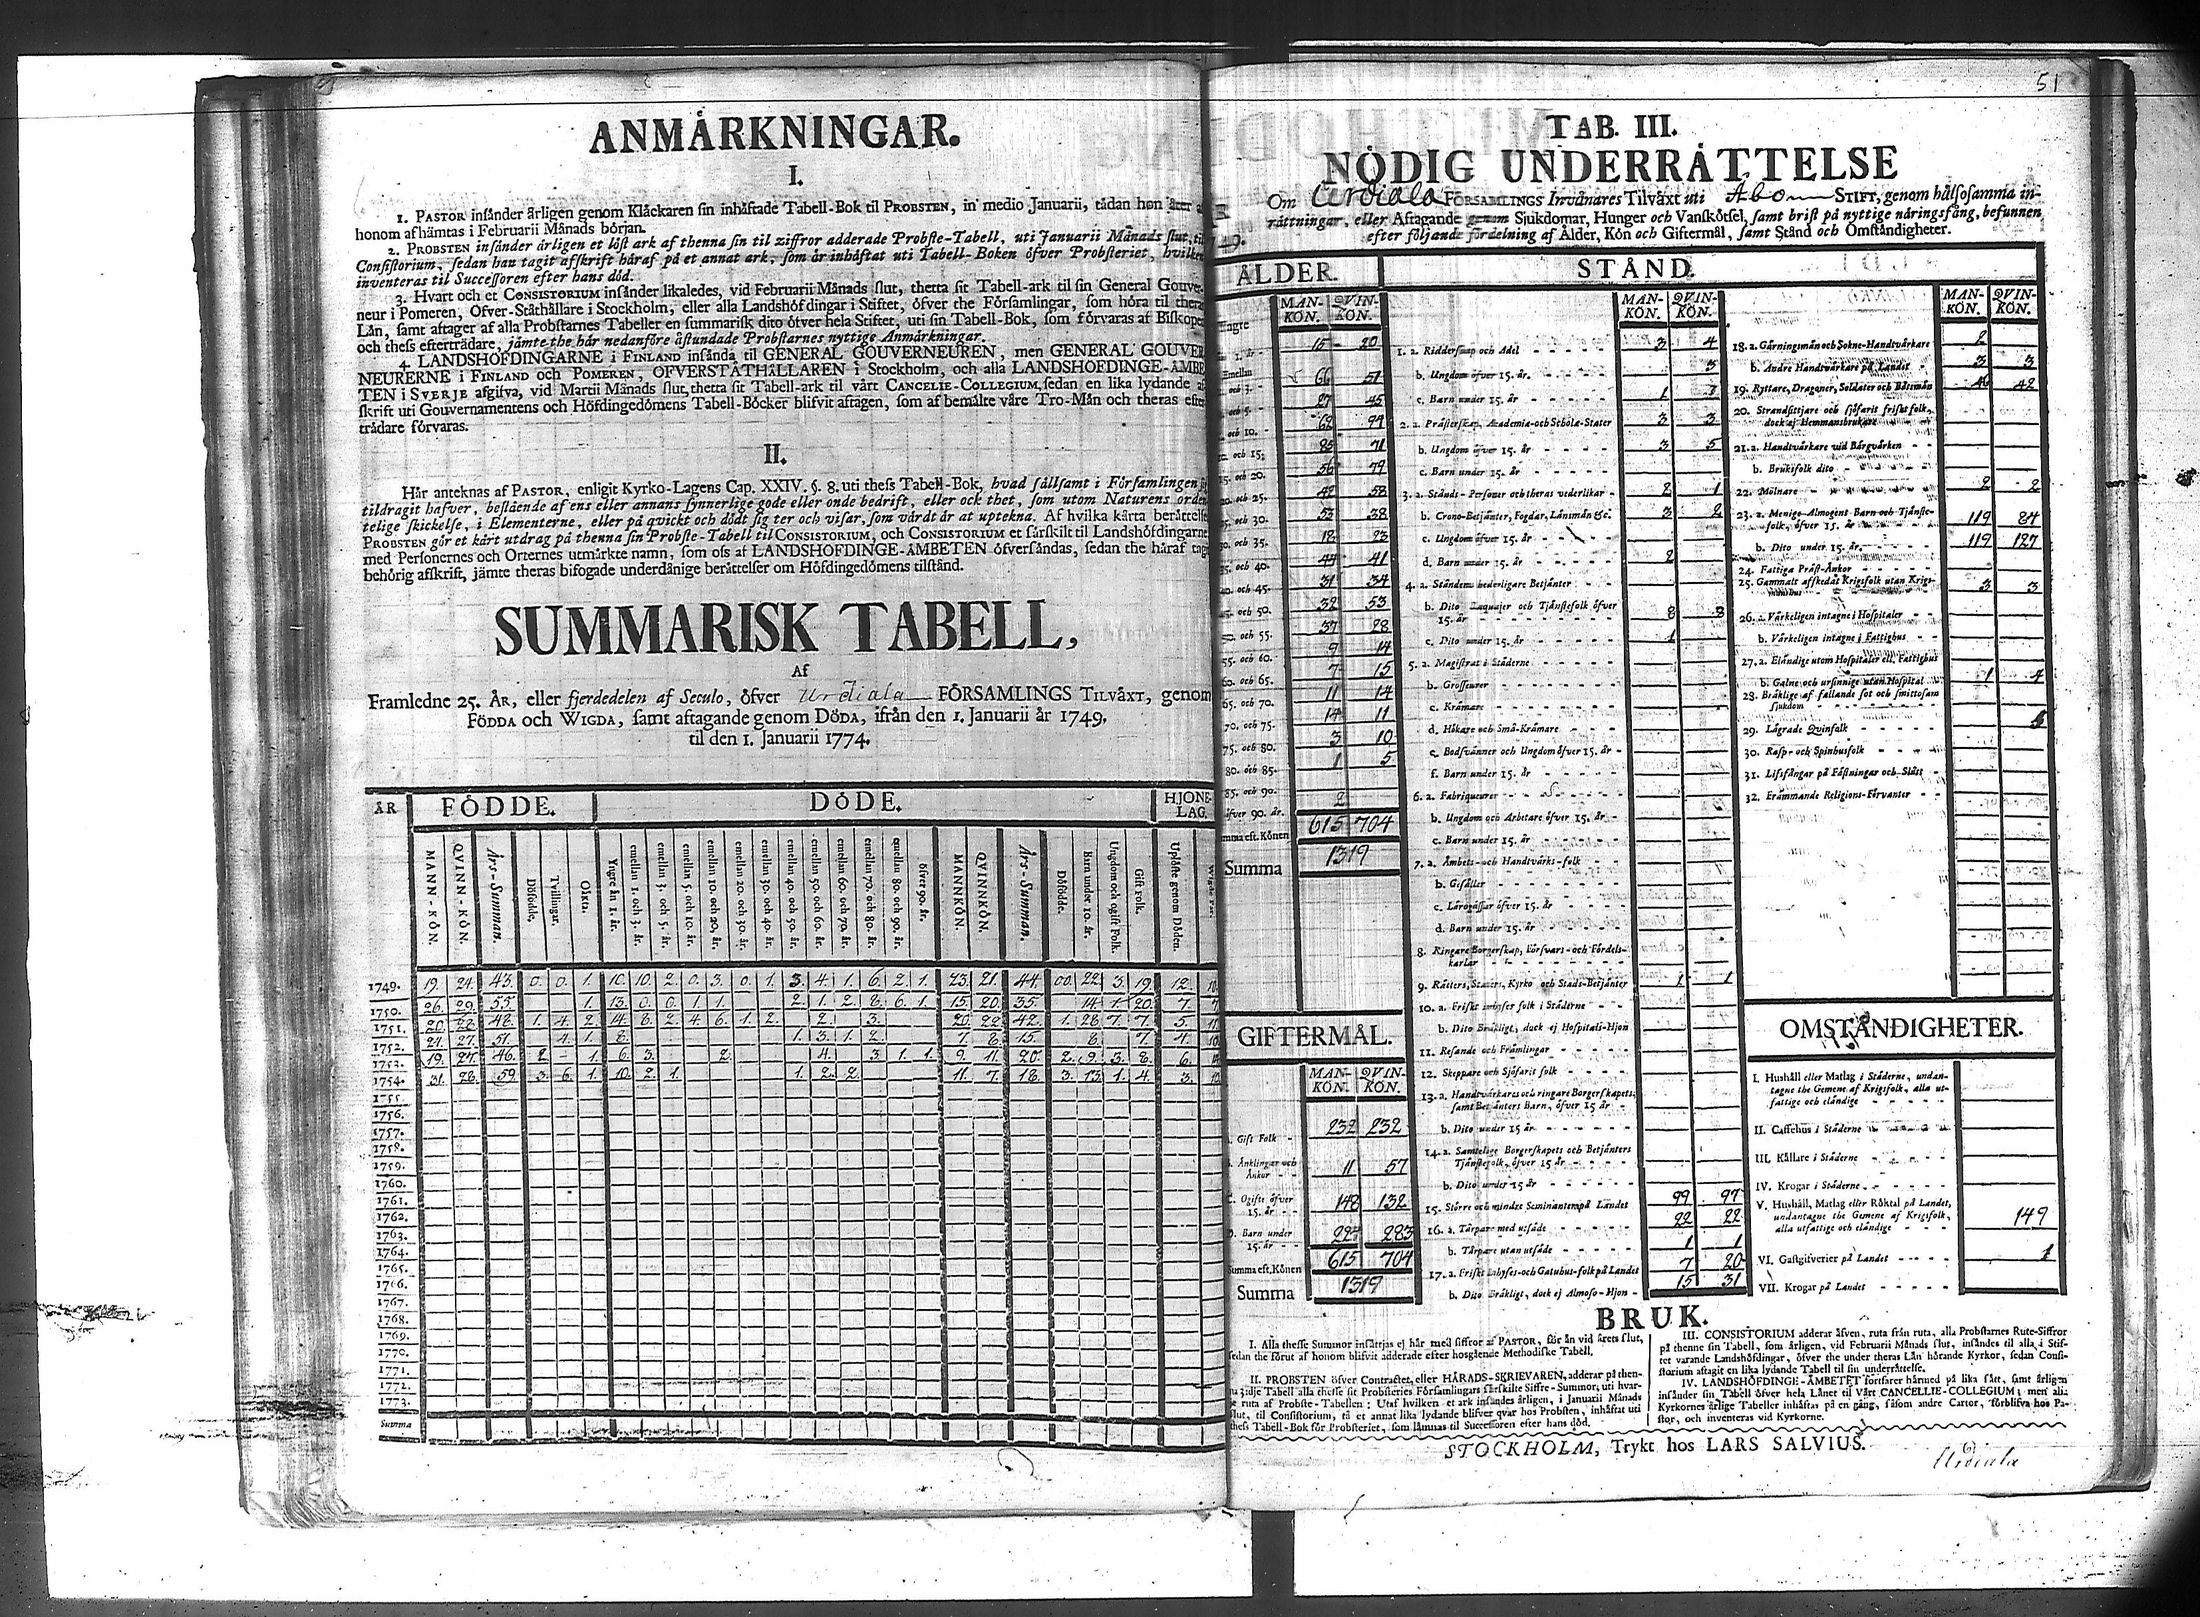 ANMÄRKNINGAR.
I.
1. PASTOR insänder årligen genom Klåckaren sin inhäftade Tabell-Bok til PROBSTEN, in medio Januarii, tådan hon åter af
honom afhämtas i Februarii Månads början.
2. PROBSTEN insänder årligen et löst ark af thenna sin til ziffror adderade Probste-Tabell, uti Januarii Månads slut, til
Consistorium, sedan han tagit affskrift häraf på et annat ark, som är inhäftat uti Tabell-Boken öfver Probsteriet, hvilken
inventeras til Successoren efter hans död.
3. Hvart och et CONSISTORIUM insänder likaledes, vid Februarii Månads slut, thetta sit Tabell-ark til sin General Gouver-
neur i Pomeren, Öfver-Ståthållare i Stockholm, eller alla Landshöfdingar i Stiftet, öfver the Församlingar, som höra til theras
Län, samt aftager af alla Probstarnes Tabeller en summarisk dito öfver hela Stiftet, uti sin Tabell-Bok, som förvaras af Biskopen
och thess efterträdare, jämte the här nedanföre åstundade Probstarnes nyttige Anmärkningar.
4. LANDSHÖFDINGARNE i FINLAND insända til GENERAL GOUVERNEUREN, men GENERAL GOUVER-
NEURERNE i FINLAND och POMEREN, ÖFVERSTÅTHÅLLAREN i Stockholm, och alla LANDSHÖFDINGE-ÄMBE-
TEN i SVERJE afgifva, vid Martii Månads slut, thetta sit Tabell-ark til vårt CANCELIE-COLLEGIUM, sedan en lika lydande af-
skrift uti Gouvernamentens och Höfdingedömens Tabell-Böcker blifvit aftagen, som af bemälte våre Tro-Män och theras efter-
trädare förvaras.
II.
Här anteknas af PASTOR, enligit Kyrko-Lagens Cap. XXIV. §. 8. uti thess Tabell-Bok, hvad sällsamt i Församlingen sig
tildragit hafver, bestående af ens eller annans synnerlige gode eller onde bedrift, eller ock thet, som utom Naturens orden-
telige skickelse, i Elementerne, eller på qvickt och dödt sig ter och visar, som värdt är at uptekna. Af hvilka kårta berättelser
PROBSTEN gör et kårt utdrag på thenna sin Probste-Tabell til CONSISTORIUM, och CONSISTORIUM et särskilt til Landshöfdingarne
med Personernes och Orternes utmärkte namn, som oss af LANDSHÖFDINGE-ÄMBETEN öfversändas, sedan the häraf tagit
behörig affskrift, jämte theras bifogade underdånige berättelser om Höfdingedömens tilstånd.
SUMMARISK TABELL,
Af
Framledne 25. ÅR, eller fjerdedelen af Seculo, öfver Urdiala FÖRSAMLINGS TILVÄXT, genom
FÖDDA och WIGDA, samt aftagande genom DÖDA, ifrån den 1. Januarii år 1749,
til den 1. Januarii 1774.
ÅR FÖDDE. DÖDE. HJONE-LAG.
MANN-KÖN. QVINN-KÖN. Års-Summan. Dödfödde. Tvillingar. Oäkta. Yngre än 1. år. emellan 1. och 3. år. emellan 3. och 5. år. emellan 5. och 10. år. emellan 10. och 20. år. emellan 20. och 30. år. emellan 30. och 40. år. emellan 40. och 50. år. emellan 50. och 60. år. emellan 60. och 70. år. emellan 70. och 80. år. emellan 80. och 90. år. öfver 90. år. MANNKÖN. QVINNKÖN. Års-Summan. Dödfödde. Barn under 10. år. Ungdom och ogift Folk. Gift Folk. Uplöste genom Döden.
1749. 19. 24. 43. 0. 0. 1. 10. 10. 2. 0. 3. 0. 1. 3. 4. 1. 6. 2. 1. 23. 21. 44. 00. 22. 3. 19. 12. 10.
1750. 26. 29. 55. 1. 13. 0. 0. 1. 1. 2. 1. 2. 8. 6. 1. 15. 20. 35. 14. 1. 20. 7. 7
1751. 20. 28. 48. 1. 4. 2. 14. 8. 2. 4. 6. 1. 2. 2. 3. 20. 22. 42. 1. 28. 7. 7. 5. 11
1752. 24. 27. 51. 4. 1. 8. 1. 3. 1. 2. 7. 8. 15. 8. 7. 4. 10
1753. 19. 27. 46. 2. - 1. 6. 3. 2. 4. 3. 1. 1. 9. 11. 20. 2. 9. 3. 8. 6.
1754. 31. 28. 59. 3. 6. 1. 10. 2. 1. 1. 2. 2. 11. 7. 18. 3. 13. 1. 4. 3.
1755
1756.
1757.
1758.
1759.
1760.
1761.
1762.
1763.
1764.
1765.
1766.
1767.
1768.
1769.
1770.
1771.
1772.
1773.
Summa
51
TAB. III.
NÖDIG UNDERRÄTTELSE
Om Urdiala FÖRSAMLINGS Invånares Tilväxt uti Åbo STIFT, genom hälsosamma in-
rättningar, eller Aftagande genom Sjukdomar, Hunger och Vanskötsel, samt brist på nyttige näringsfång, befunnen
efter följande fördelning af Ålder, Kön och Giftermål, samt Stånd och Omständigheter.
ÅLDER.
MAN-KÖN. QVIN-KÖN.
Yngre
1. år - 15 - 20
Emellan
och 3. - 66 51
och 5. - 27 45
och 10. - 68 99
och 15. 85 71
15. och 20. 56 79
20. och 25. 42 58
25. och 30. 53 38
30. och 35. 18 23
35. och 40. 44 41
40. och 45. 31 34
45. och 50. 32 53
50. och 55. 37 28
55. och 60. 9 14
60. och 65. 7 15
65. och 70. 11 14
70. och 75. 14 11
75. och 80. 3 10
80. och 85. 1 5
85. och 90. 2
öfver 90. år.
Summa eft. Könen 615 704
Summa 1319
GIFTERMÅL.
MAN-KÖN. QVIN-KÖN.
Gift Folk - 232 232
Änklingar och Änkor - 11 57
Ogifte öfver 15. år - 148 132
Barn under 15. år - 224 283
Summa eft. Könen 615 704
Summa 1319
STÅND.
MAN-KÖN. QVIN-KÖN.
1. a. Ridderskap och Adel 3 4
b. Ungdom öfver 15. år. 3
c. Barn under 15. år 1 7
2. a. Prästerskap, Academia-och Schole-Stater 3 3
b. Ungdom öfver 15. år 3 5
c. Barn under 15. år
3. a. Stånds-Personer och theras vederlikar 2 1
b. Crono-Betjänter, Fogdar, Länsmän &c. 3 2
c. Ungdom öfver 15. år
d. Barn under 15. år 2
4. a. Ståndens hederligare Betjänter
b. Dito Laquajer och Tjänstefolk öfver 15. år 8 8
c. Dito under 15. år 1
5. a. Magistrat i Städerne
b. Grosseurer
c. Krämare
d. Hökare och Små-Krämare
e. Bodsvänner och Ungdom öfver 15. år
f. Barn under 15. år
6. a. Fabriqueurer
b. Ungdom och Arbetare öfver 15. år
c. Barn under 15. år
7. a. Ämbets- och Handtvärks-folk
b. Gesäller
c. Lärogässar öfver 15. år
d. Barn under 15. år
8. Ringare Borgerskap, Försvars- och Fördels-karlar
9. Rätters, Staters, Kyrko och Stads-Betjänter 1 1
10. a. Friskt inhyses folk i Städerne
b. Dito Bräkligt, dock ej Hospitals-Hjon
11. Resande och Främlingar
12. Skeppare och Sjöfarit folk
13. a. Handtvärkares och ringare Borgerskapets, samt Betjänters Barn, öfver 15 år
b. Dito under 15 år
14. a. Samtelige Borgerskapets och Betjänters Tjänstefolk, öfver 15 år
b. Dito under 15 år
15. Större och mindre Hemmansmän på Landet 99 97
16. a. Torpare med utsäde 22 22
b. Torpare utan utsäde 1 1
17. a. Friskt Inhyses-och Gatuhus-folk på Landet 7 20
b. Dito Bräkligt, dock ej Almoso-Hjon 15 31
MAN-KÖN. QVIN-KÖN.
18. a. Gärningsmän och Sokne-Handtvärkare 2
b. Andre Handtvärkare på Landet 3 3
19. Ryttare, Dragoner, Soldater och Båtsmän 46 42
20. Strandsittjare och sjöfarit friskt folk, dock ej Hemmansbrukare
21. a. Handtvärkare vid Bärgvärken
b. Bruksfolk dito
22. Mölnare 2 2
23. a. Menige-Almogens Barn och Tjänste-folk, öfver 15. år 119 84
b. Dito under 15. år. 119 127
24. Fattiga Präst-Änkor
25. Gammalt affskedat Krigsfolk utan Krigs- 3 3
26. a. Värkeligen intagne i Hospitaler
b. Värkeligen intagne i Fattighus
27. a. Eländige utom Hospitaler ell. Fattighus
b. Galne och ursinnige utan Hospital 1 4
28. Bräklige af fallande sot och smittosam sjukdom
29. Lägrade Qvinfolk
30. Rasp- och Spinhusfolk
31. Lifsfångar på Fästningar och Slått
32. Främmande Religions-Förvanter
OMSTÄNDIGHETER.
I. Hushåll eller Matlag i Städerne, undan-
tagne the Gemene af Krigsfolk, alla ut-
fattige och eländige
II. Caffehus i Städerne
III. Källare i Städerne
IV. Krogar i Städerne
V. Hushåll, Matlag eller Röktal på Landet,
undantagne the Gemene af Krigsfolk,
alla utfattige och eländige 149
VI. Gästgifverier på Landet 1
VII. Krogar på Landet
BRUK.
I. Alla thesse Summor insättjas ej här med siffror af PASTOR, för än vid årets slut,
sedan the förut af honom blifvit adderade efter hosgående Methodiske Tabell.
II. PROBSTEN öfver Contractet, eller HÄRADS-SKRIEVAREN, adderar på then-
na 3:dje Tabell alla thesse sit Probsteries Församlingars särskilte Siffre-Summor, uti hvar-
je ruta af Probste-Tabellen: Utaf hvilken et ark insändes årligen, i Januarii Månads
slut, til Consistorium, tå et annat lika lydande blifver qvar hos Probsten, inhäftat uti
thess Tabell-Bok för Probsteriet, som lämnas til Successoren efter hans död.
III. CONSISTORIUM adderar äfven, ruta från ruta, alla Probstarnes Rute-Siffror
på thenne sin Tabell, som årligen, vid Februarii Månads slut, insändes til alla i Stif-
tet varande Landshöfdingar, öfver the under theras Län hörande Kyrkor, sedan Consi-
storium aftagit en lika lydande Tabell til sin underrättelse.
IV. LANDSHÖFDINGE-ÄMBETET fortfarer härmed på lika sätt, samt årligen
insänder sin Tabell öfver hela Länet til Vårt CANCELLIE-COLLEGIUM; men alla
Kyrkornes årlige Tabeller inhäftas på en gång, såsom andre Cartor, förblifva hos Pa-
stor, och inventeras vid Kyrkorne.
STOCKHOLM, Trykt hos LARS SALVIUS.
Urdiala